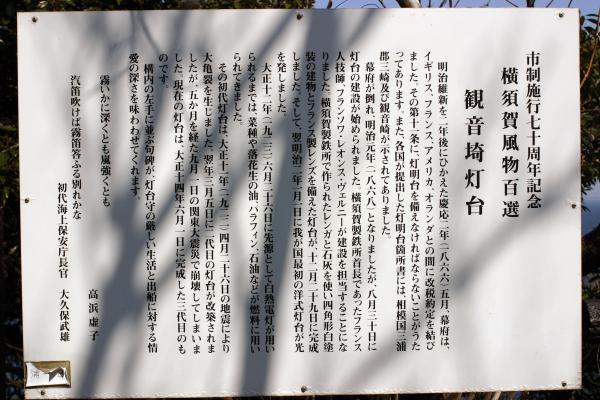 市制施行七十周年記念
横須賀風物百選
観音埼灯台
明治維新を二年後にひかえた慶応二年(一八六六)五月、幕府は、
イギリス、フランス、アメリカ、オランダとの間に改税約定を結び
ました。その第十一条に、灯明台を備えなければならないことがうた
ってあります。また、各国が提出した灯明台箇所書には、相模国三浦
郡三崎及び観音崎が示されてありました。
幕府が倒れ、明治元年(一八六八)となりましたが、八月三十日に
灯台の建設が始められました。横須賀製鉄所首長であったフランス
人技師、フランソワ・レオンス・ヴェルニーが建設を担当することにな
りました。横須賀製鉄所で作られたレンガと石灰を使い四角形白塗
装の建物とフランス製レンズを備えた灯台が、十二月二十九日に完成
しました。そして、翌明治二年一月一日に我が国最初の洋式灯台が光
を発しました。
大正十二年(一九二三)六月二十六日に光源として白熱電灯が用い
られるまでは、菜種や落花生の油、パラフィン、石油などが燃料に用い
られてきました。
その初代灯台は、大正十一年(一九二二)四月二十六日の地震により
大亀裂を生じました。翌年三月五日に二代目の灯台が改築されま
したが、五か月を経た九月一日の関東大震災で崩壊してしまいま
した。現在の灯台は、大正十四年六月一日に完成した三代目のも
のです。
構内の左手に並ぶ句碑が、灯台守の厳しい生活と出船に対する情
愛の深さを味わわせてくれます。
霧いかに深くとも嵐強くとも
高浜虚子
汽笛吹けば霧笛答ふる別れかな
初代海上保安庁長官 大久保武雄